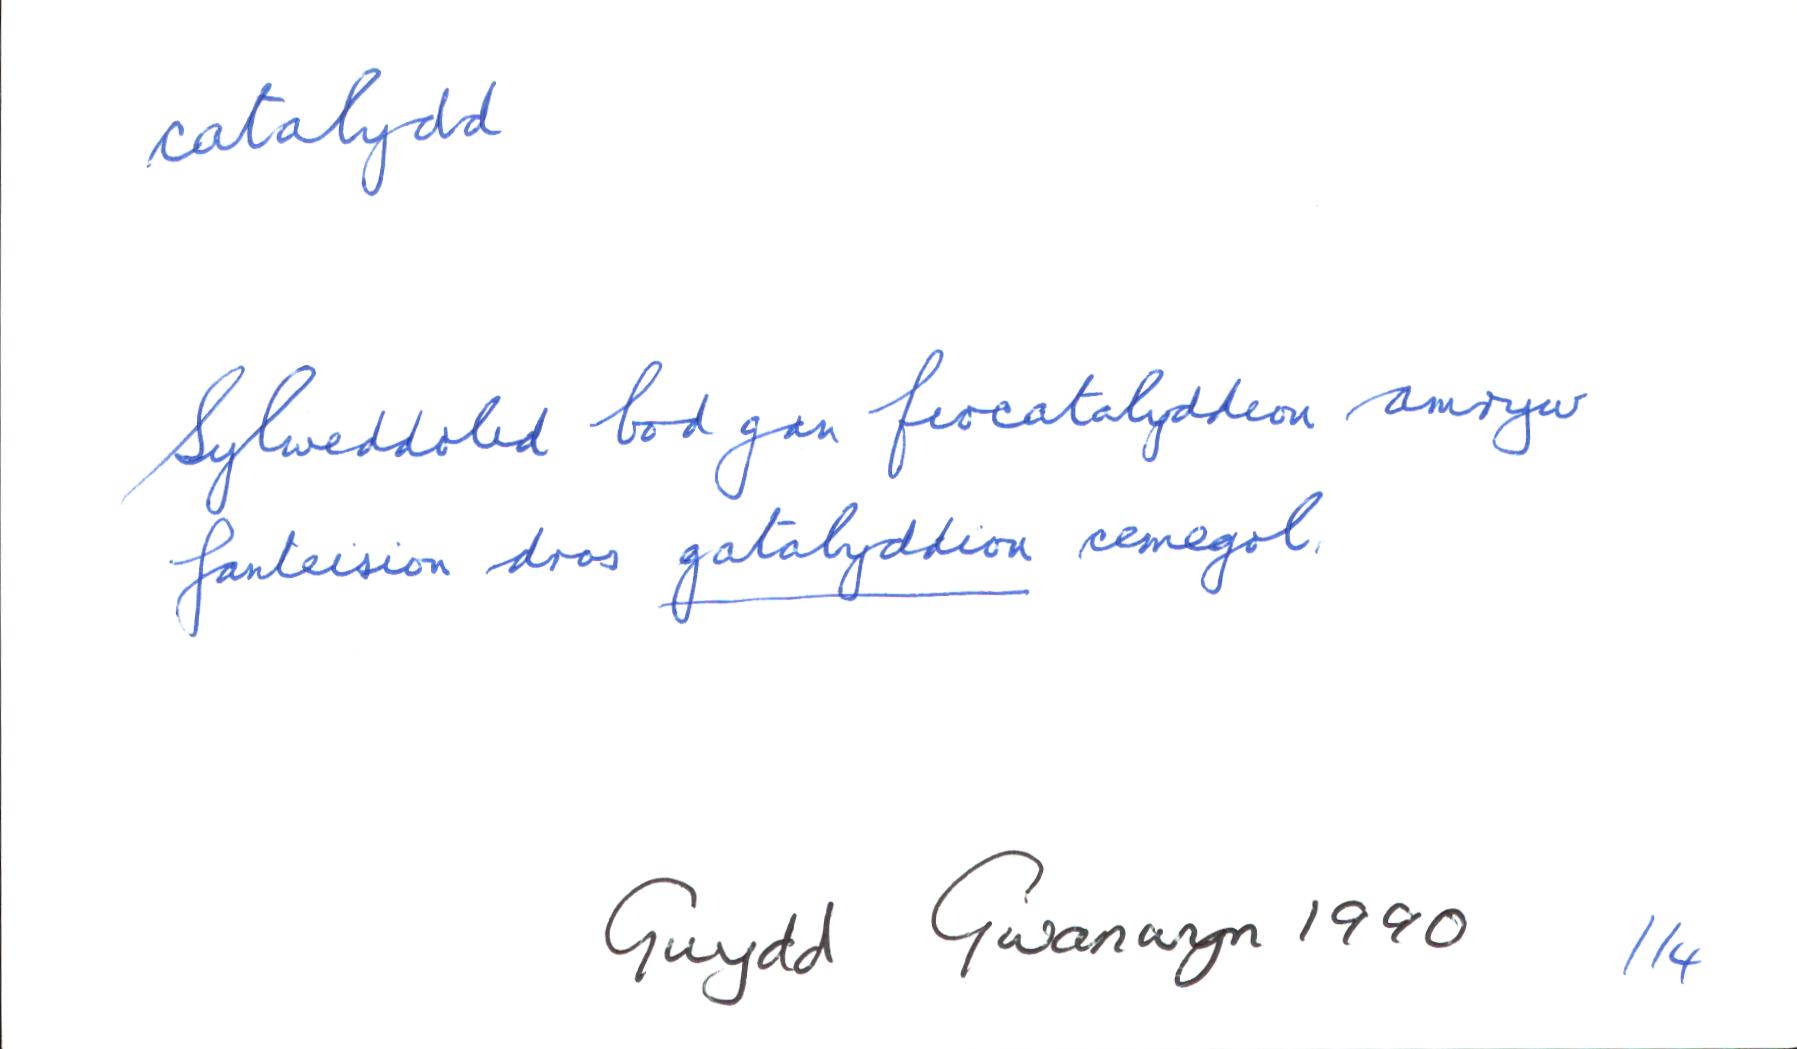 catalydd
Sylweddoled bod gan fiocatalyddion amryw
fanteision dros gatalyddion cemegol.
Gwydd Gwanwyn 1990 114